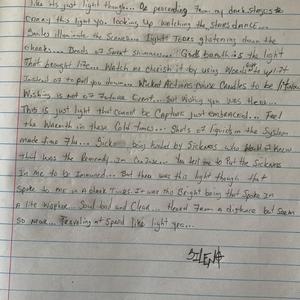 like its just light though... So pounding from my dark steps to
Convey this light you looking up watching the stars dance...
Candles illuminate the Scene... Light Tears glistening down the
cheeks... Beads of Sweat shimmer... Gods breath is the light
That brought life... Watch me cherish it by using Words to
Instead of to pull you down... Wicked Actions cause Candles to be lit
Wishing is not of Future Event... But Wishing you was there...
This is just light that cannot be Capture Just embraced... Feel
the Warmth in these Cold times... Shots of liquids in the System
made time Flu... Sick being healed by Sickness who would of knew
that was the Remedy... You told me to Put the Sickness
In me to be Immuned... But there was this light though that
Spoke to me in a bleak times. It was this Bright being that Spoke In
a lite Whisper... Soul bold and Clear... Heard From a distance but Seem
so near... Traveling at Speed like light yes...